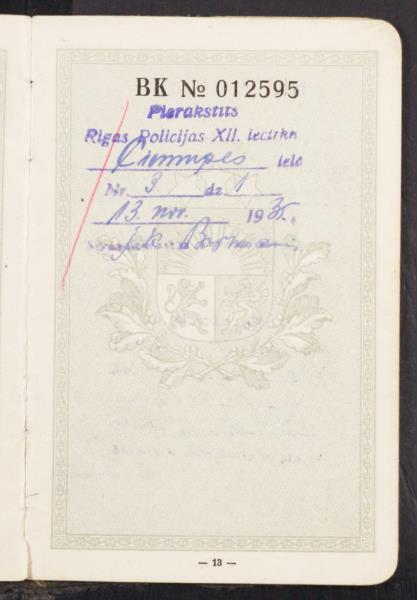 BK № 012595
Pierakstīts
Rīgas Policijas XII. iecirknī
Ciemupes ielā
Nr. 9 dz. 1
13. nov. 1935.
— 13 —